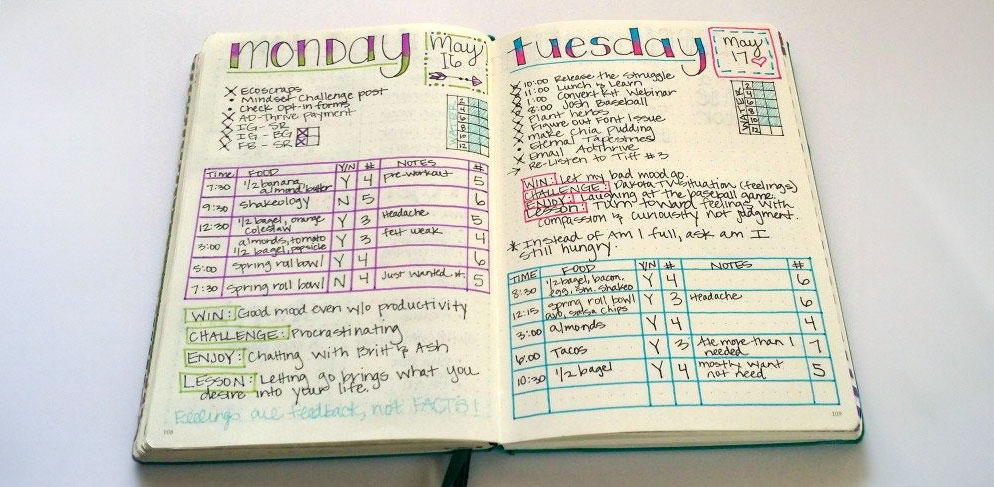 monday
May
16
X Ecoscraps
• Mindset Challenge post
• Check Opt-in forms
X AD-Thrive payment
X IG - SR
X IG - BG
X FB - SR
2
4
6
8
10
12
TIME FOOD Y/N # NOTES #
7:30 1/2 banana, almond butter Y 4 pre-workout 5
9:30 shakeology N 5 6
12:30 1/2 bagel, orange Y 3 Headache 5
coleslaw
3:00 almonds, tomato Y 3 felt weak 4
1/2 bagel, popsicle
5:00 spring roll bowl Y 4 6
7:30 spring roll bowl N 4 Just wanted it. 5
WIN: Good mood even w/o productivity
CHALLENGE: Procrastinating
ENJOY: Chatting with Britt & Ash
LESSON: Letting go brings what you
desire into your life.
Feelings are feedback, not FACTS!
108
tuesday
May
17
X 10:00 Release the Struggle
X 11:00 Lunch & Learn
X 1:00 ConvertKit Webinar
X 8:00 Josh Baseball
X Plant herbs
X Figure out Font Issue
X make chia pudding
• Eternal Tapestries
X Email AdThrive
> Re-Listen to Tiff #3
WATER
2
4
6
8
10
12
WIN: Let my bad mood go.
CHALLENGE: Dakota TV situation (feelings)
ENJOY: Laughing at the baseball game.
LESSON: Turn toward feelings with
compassion & curiousity not judgment.
* Instead of Am I full, ask am I
still hungry.
TIME FOOD Y/N # NOTES #
8:30 1/2 bagel, bacon, Y 4 6
egg, sm. shakeo
12:15 spring roll bowl Y 3 Headache 6
avo, salsa chips
3:00 almonds Y 4 4
6:00 Tacos Y 3 Ate more than I 7
needed
10:30 1/2 bagel Y 4 mostly want 5
not need
109